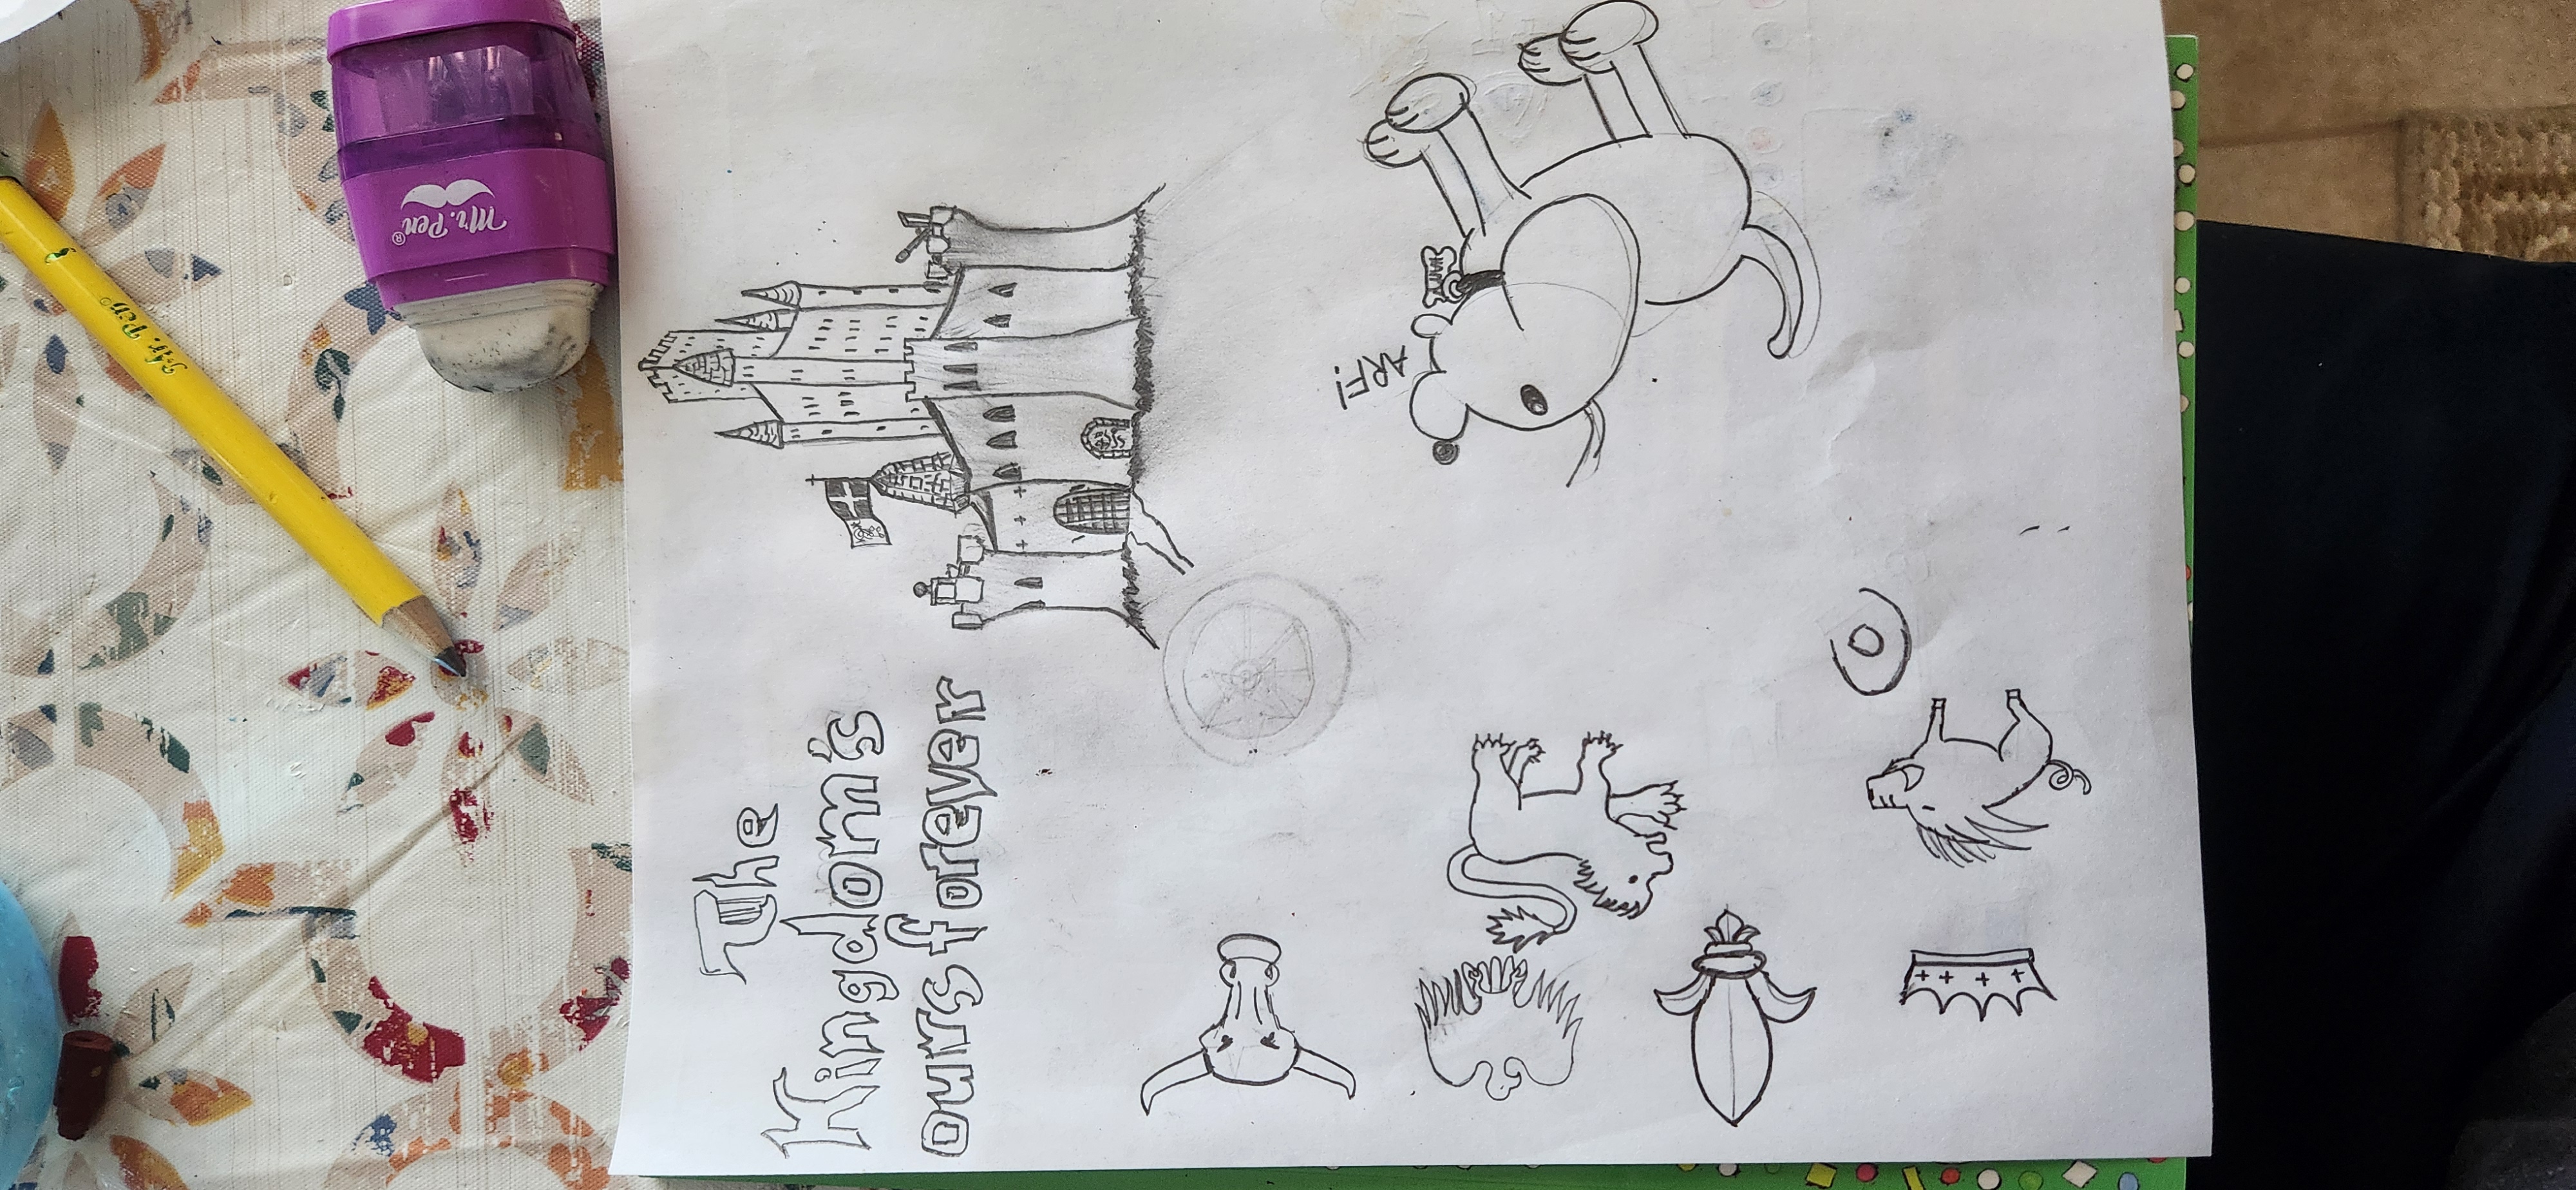 Mr. Pen®
Mr. Pen®
The
Kingdom's
ours forever
ARF!